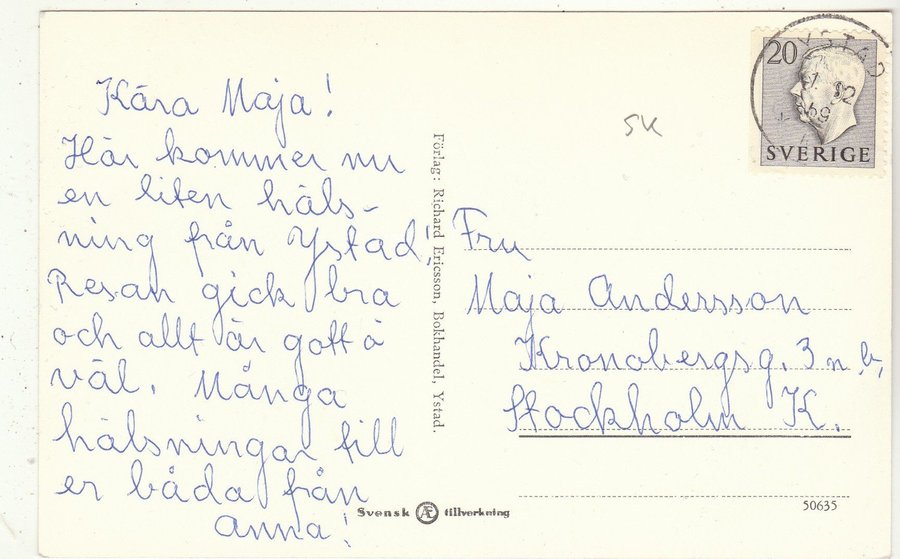 Kära Maja!
Här kommer nu
en liten häls-
ning från Ystad!
Resan gick bra
och allt är gott å
väl. Många
hälsningar till
er båda från
Anna!
Förlag: Richard Ericsson, Bokhandel, Ystad.
SK
20
SVERIGE
YSTAD
Fru
Maja Andersson
Kronobergsg. 3 n.b,
Stockholm K.
Svensk Æ tillverkning
50635